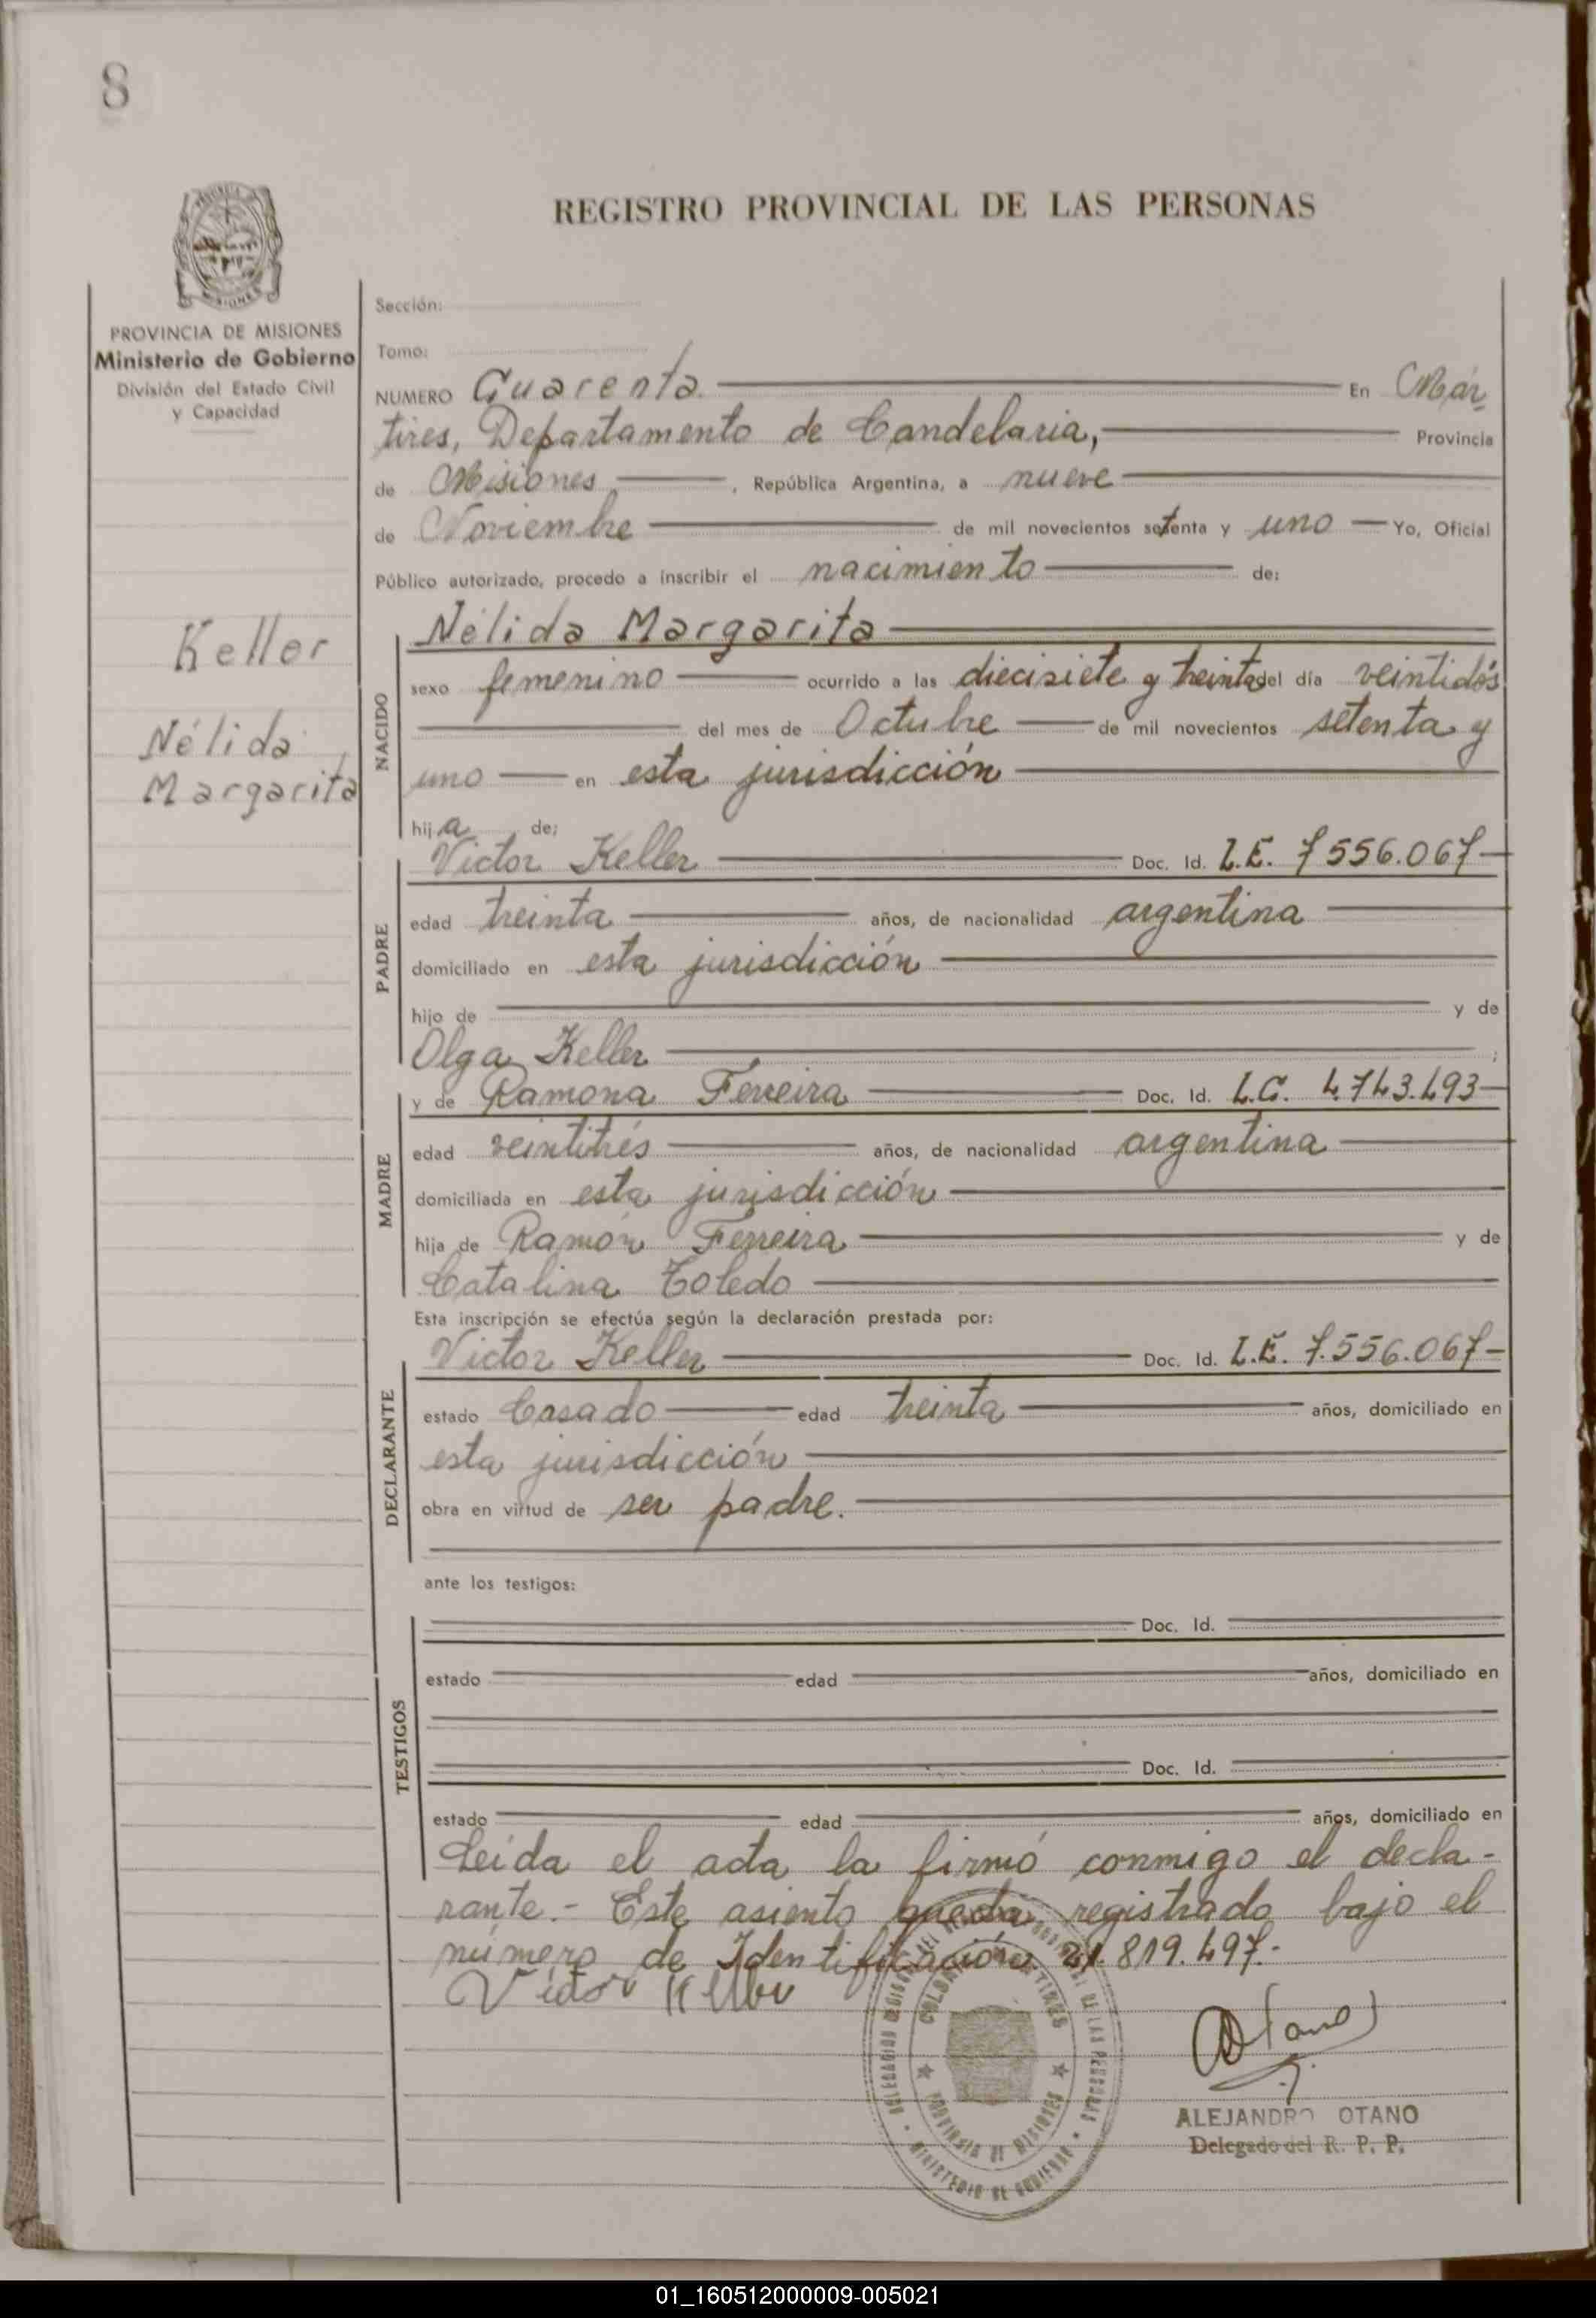 8
REGISTRO PROVINCIAL DE LAS PERSONAS
PROVINCIA DE MISIONES
Ministerio de Gobierno
División del Estado Civil
y Capacidad
Keller
Nélida
Margarita
Sección:
Tomo:
NUMERO Cuarenta En Már-
tires, Departamento de Candelaria, Provincia
de Misiones, República Argentina, a nueve
de Noviembre de mil novecientos setenta y uno Yo, Oficial
Público autorizado, procedo a inscribir el nacimiento de:
NACIDO
Nélida Margarita
sexo femenino ocurrido a las diecisiete y treinta del día veintidós
del mes de Octubre de mil novecientos setenta y
uno en esta jurisdicción
hija de:
PADRE
Victor Keller Doc. Id. L.E. 7556.067
edad treinta años, de nacionalidad argentina
domiciliado en esta jurisdicción
hijo de y de
Olga Keller ;
MADRE
y de Ramona Ferreira Doc. Id. L.C. 4.743.493
edad veintitrés años, de nacionalidad argentina
domiciliada en esta jurisdicción
hija de Ramón Ferreira y de
Catalina Toledo
Esta inscripción se efectúa según la declaración prestada por:
DECLARANTE
Victor Keller Doc. Id. L.E. 7.556.067
estado Casado edad treinta años, domiciliado en
esta jurisdicción
obra en virtud de ser padre.
ante los testigos:
TESTIGOS
Doc. Id.
estado edad años, domiciliado en
Doc. Id.
estado edad años, domiciliado en
Leída el acta la firmó conmigo el decla-
rante.- Este asiento queda registrado bajo el
número de Identificación 21.819.497.-
Victor Keller
PROVINCIA DE MISIONES
MINISTERIO DE GOBIERNO
ALEJANDRO OTANO
Delegado del R. P. P.
01_160512000009-005021